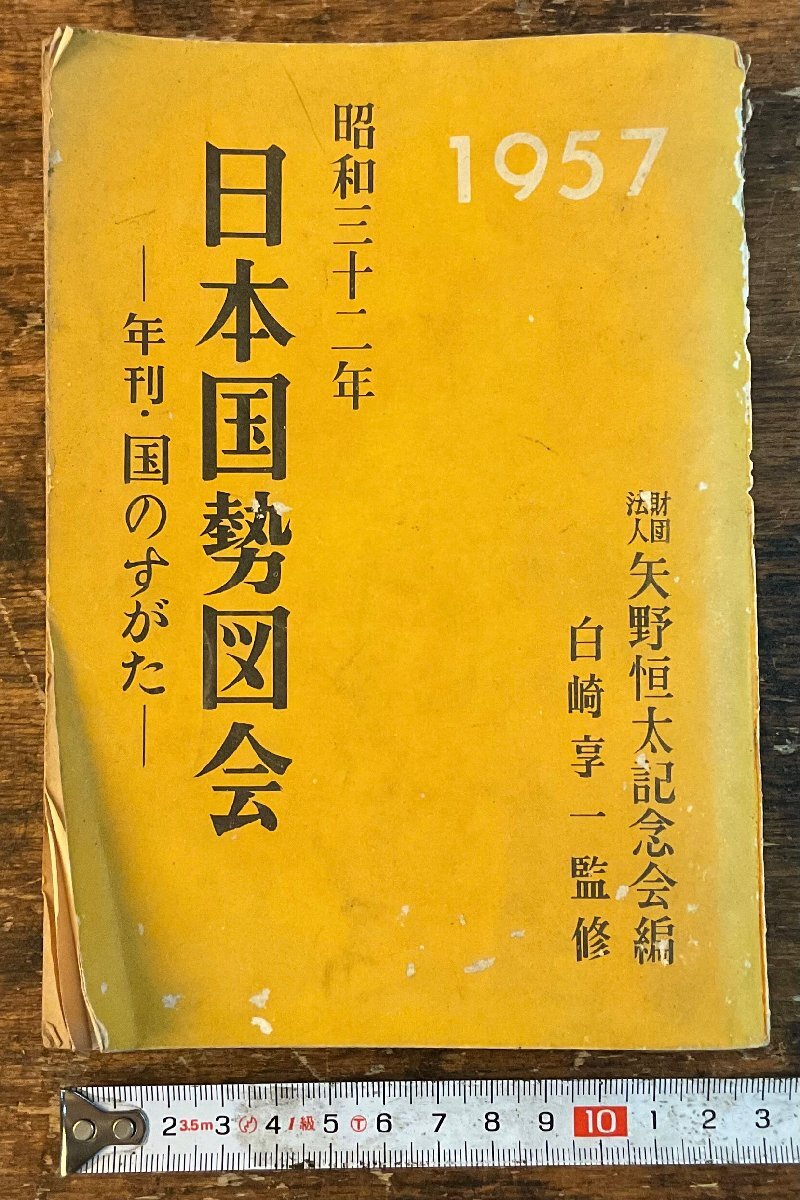 1957
財団
法人
矢野恒太記念会編
白崎享一監修
昭和三十二年
日本国勢図会
―年刊・国のすがた―
2 3.5m 3 4 1級 5 T 6 7 8 9 10 1 2 3